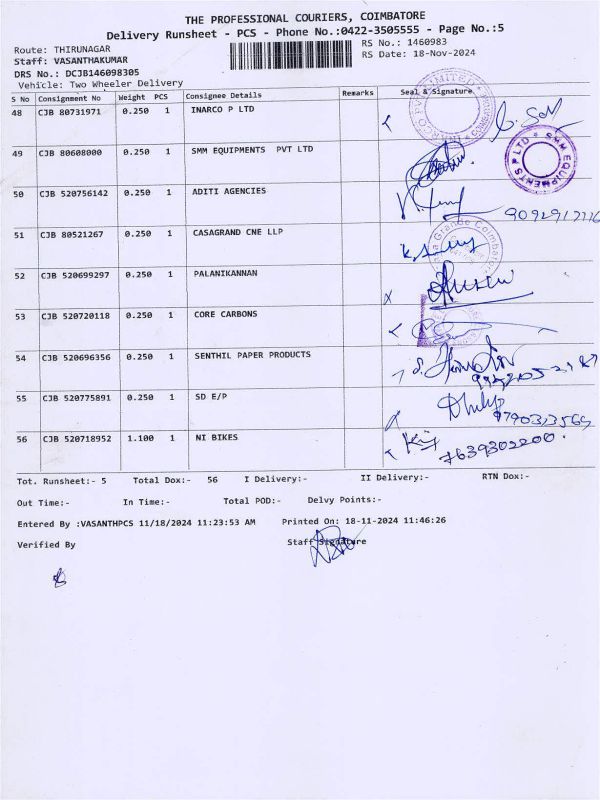 THE PROFESSIONAL COURIERS, COIMBATORE
Delivery Runsheet - PCS - Phone No.:0422-3505555 - Page No.:5
Route: THIRUNAGAR
RS No.: 1460983
Staff: VASANTHAKUMAR
RS Date: 18-Nov-2024
DRS No.: DCJB146098305
Vehicle: Two Wheeler Delivery
S No Consignment No Weight PCS Consignee Details Remarks Seal & Signature
48 CJB 80731971 0.250 1 INARCO P LTD
49 CJB 80608000 0.250 1 SMM EQUIPMENTS PVT LTD
SMM EQUIPMENTS P LTD
50 CJB 520756142 0.250 1 ADITI AGENCIES
51 CJB 80521267 0.250 1 CASAGRAND CNE LLP
52 CJB 520699297 0.250 1 PALANIKANNAN
53 CJB 520720118 0.250 1 CORE CARBONS
54 CJB 520696356 0.250 1 SENTHIL PAPER PRODUCTS
55 CJB 520775891 0.250 1 SD E/P
56 CJB 520718952 1.100 1 NI BIKES
7639302200.
Tot. Runsheet:- 5 Total Dox:- 56 I Delivery:- II Delivery:- RTN Dox:-
Out Time:- In Time:- Total POD:- Delvy Points:-
Entered By :VASANTHPCS 11/18/2024 11:23:53 AM Printed On: 18-11-2024 11:46:26
Verified By Staff Signature